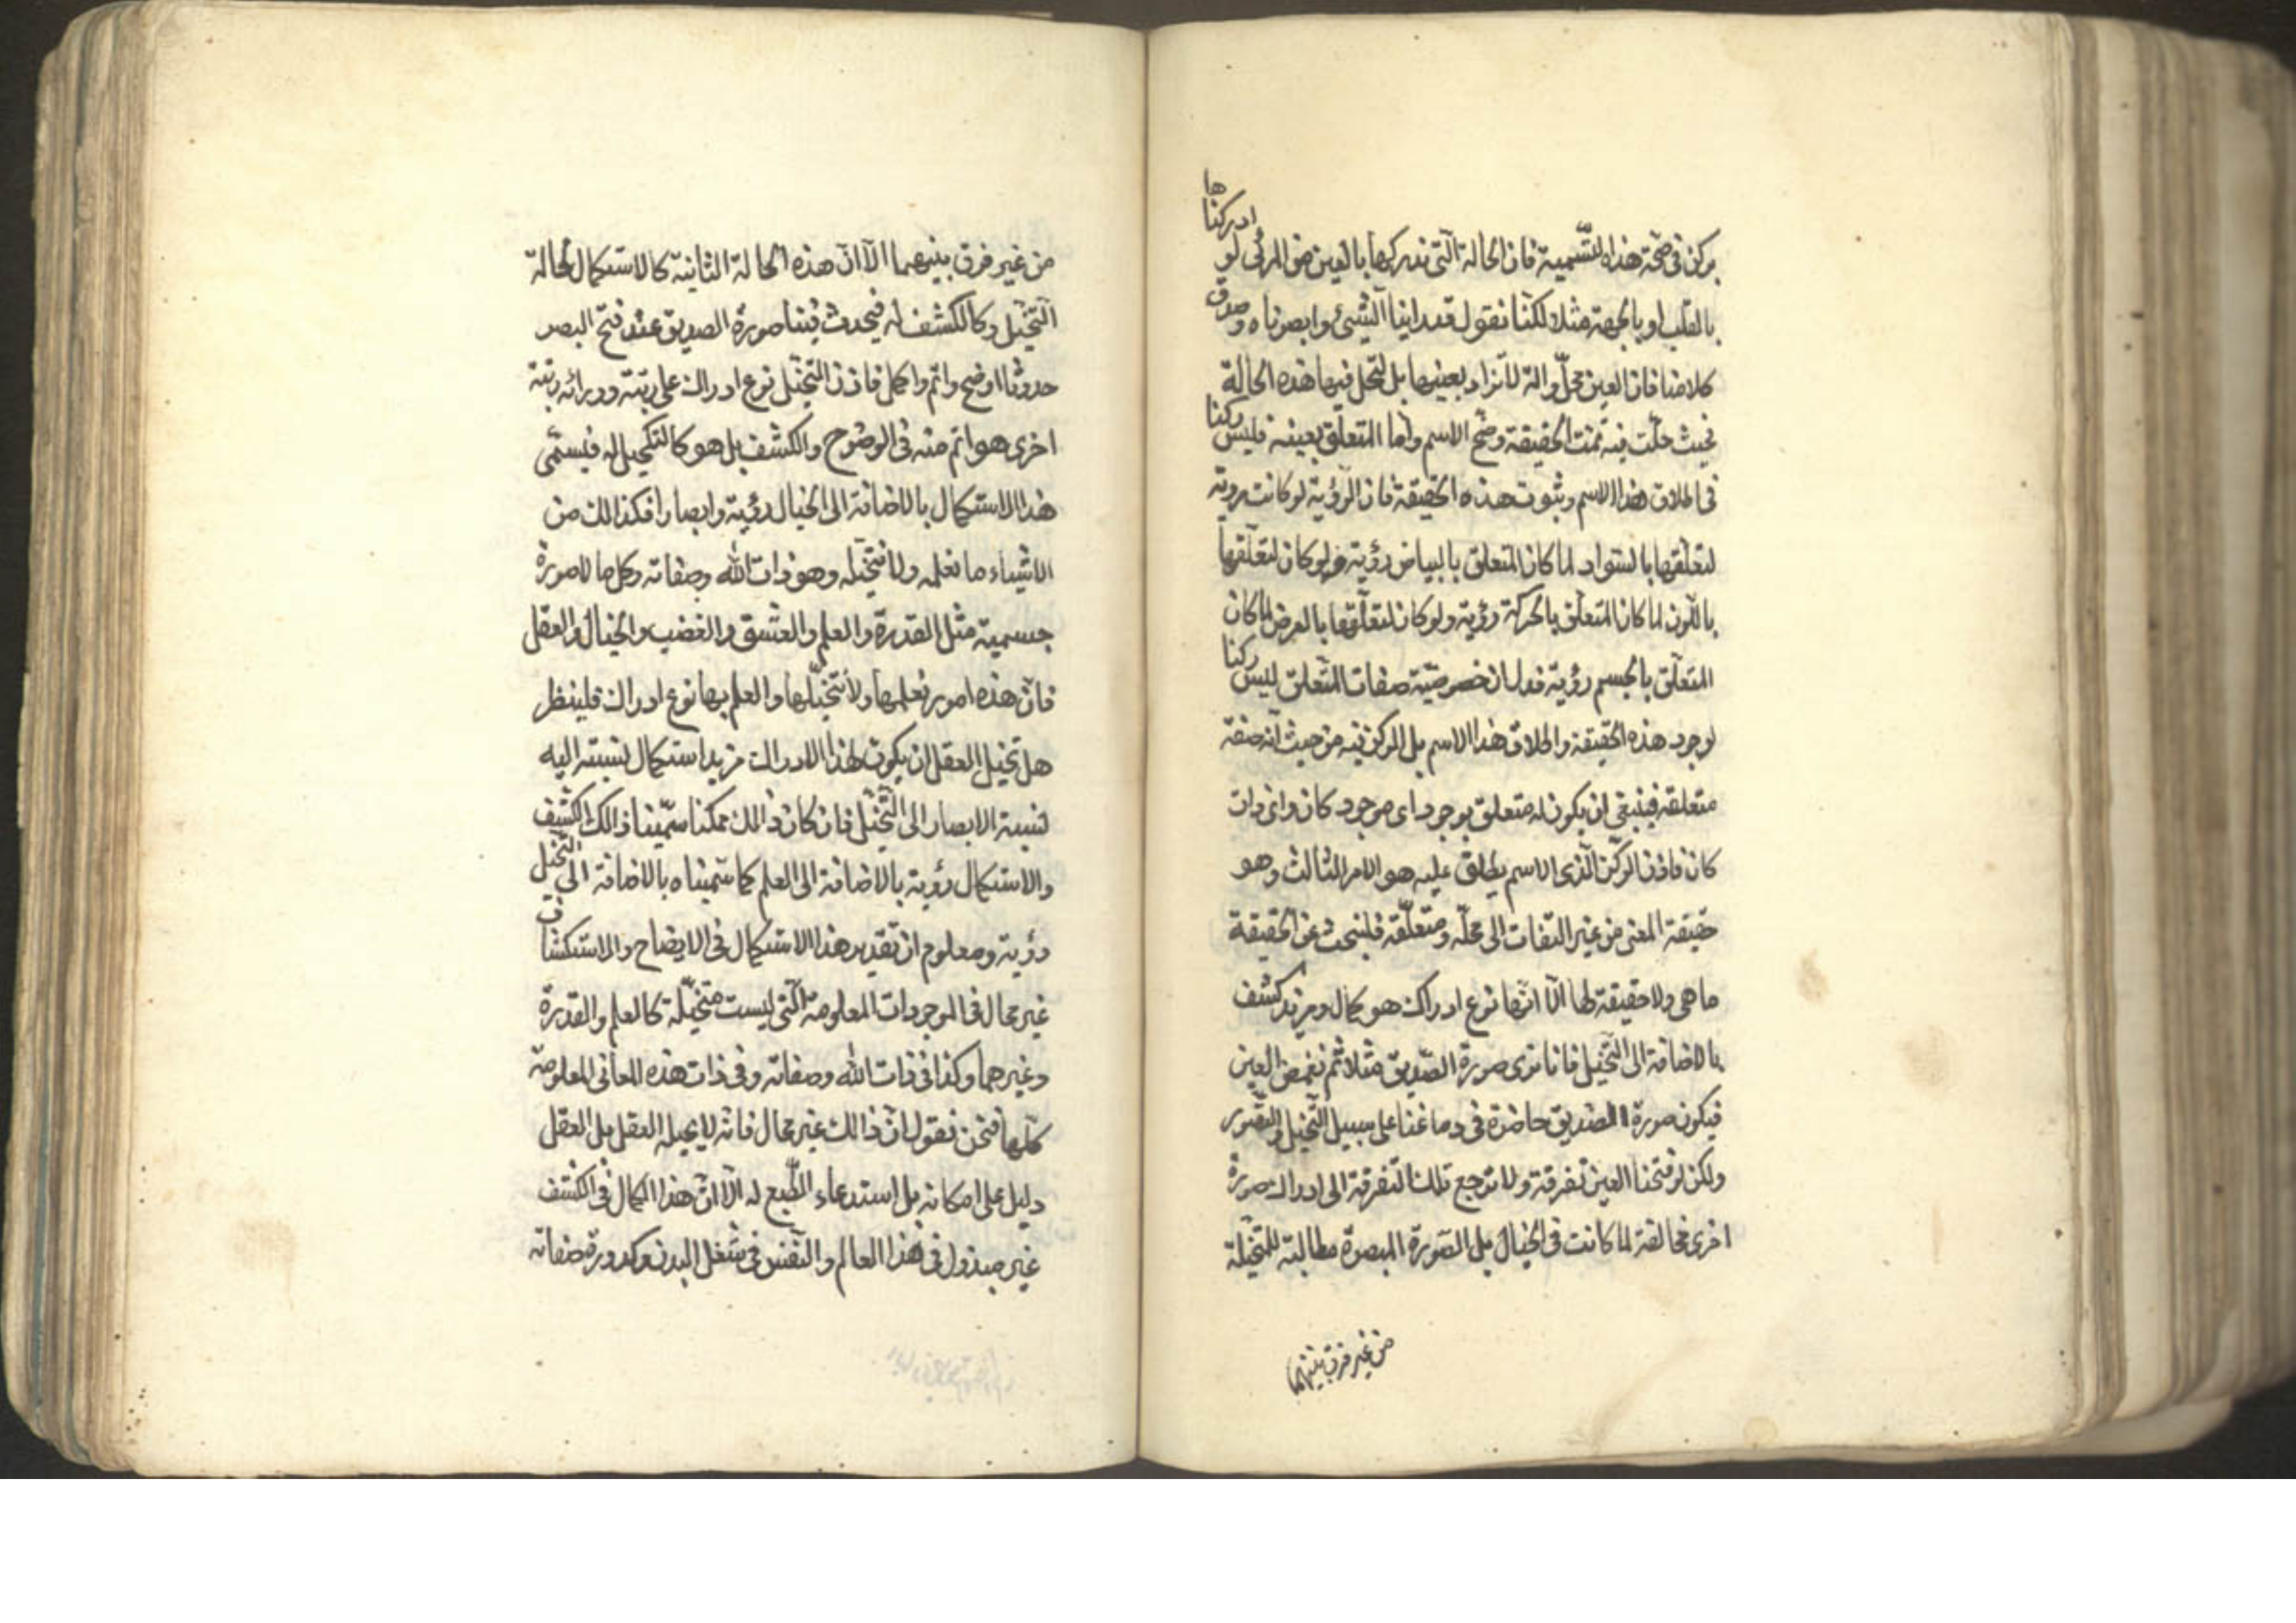 بركن فى صحّة هذه التّسمية فان الحالة الّتى ندركها بالعين من المرئى لو ادركناها
بالقلب او بالجبهة مثلا لكنّا نقول قد راينا الشىء وابصرناه وصدق
كلامنا فان العين محلّ وآلة لا تراد بعينها بل لتحل فيها هذه الحالة
فحيث حلّت فيه تمت الحقيقة وصحّ الاسم واما المتعلّق بعينه فليس ركنا
فى اطلاق هذا الاسم وثبوت هذه الحقيقة فان الرّؤية لو كانت روية
لتعلّقها بالسّواد لما كان المتعلق بالبياض رؤية ولو كان لتعلّقها
باللّون لما كان المتعلّق بالحركة رؤية ولو كان لتعلّقها بالعرض لما كان
المتعلّق بالجسم رؤية فدل ان خصوصيّة صفات المتّعلق ليس ركنا
لوجود هذه الحقيقة واطلاق هذا الاسم بل الركن فيه من حيث انّه صفة
متعلقة فينبغى ان يكون له متعلق بوجود اى موجود كان واى ذات
كان فاذن الرّكن الّذى الاسم يطلق عليه هو الامر الثالث وهو
حقيقة المعنى من غير التفات الى محلّه ومتعلّقه فلنبحث عن الحقيقة
ما هى ولا حقيقة لها الّا انّها نوع ادراك هو كمال ومزيد كشف
بالاضافة الى التّخيل فانا نرى صورة الصّديق مثلا ثم نغمض العين
فيكون صورة الصديق حاضرة فى دماغنا على سبيل التّخيل والتّصور
ولكن لو فتحنا العين تفرقة ولا ترجع تلك التفرقة الى ادراك صورة
اخرى مخالفة لما كانت فى الخيال بل الصّورة المبصرة مطالبة للمتخيلة
من غير فرق بينهما
من غير فرق بينهما الّا انّ هذه الحالة الثانية كالاستكمال لحالة
التّخيل وكالكشف له فيحدث فينا صورة الصديق عند فتح البصر
حدوثا اوضح واتم واكمل فاذن التّخيل نوع ادراك على رتبة وورائه رتبة
اخرى هو اتم منه فى الوضوح والكشف بل هو كالتّكميل له فيسمّى
هذا الاستكمال بالاضافة الى الخيال رؤية وابصارا فكذالك من
الاشياء ما نعلمه ولا نتخيّله وهو ذات الله وصفاته وكل ما لا صورة
جسمية مثل القدرة والعلم والعشق والغضب والخيال والعقل
فانّ هذه امور نعلمها ولا نتخيّلها والعلم بها نوع ادراك فلينظر
هل تحيل العقل ان يكون لهذا الادراك مزيد استكمال نسبته اليه
لنسبة الابصار الى التّخيّل فان كان ذالك ممكنا سمّينا ذالك الكشف
والاستكمال رؤية بالاضافة الى العلم كما سمّيناه بالاضافة الى التّخيل
رؤية ومعلوم ان تقدير هذا الاستكمال فى الايضاح والاستكشاف
غير محال فى الموجودات المعلومة الّتى ليست متخيّلة كالعلم والقدرة
وغيرهما وكذا فى ذات الله وصفاته وفى ذات هذه المعانى المعلومة
كلّها فنحن نقول انّ ذالك غير محال فانّه لا يحيله العقل بل العقل
دليل على امكانه بل استدعاء الطّبع له الّا انّ هذا الكمال فى الكشف
غير مبذول فى هذا العالم والنّفس فى شغل البدن وكدورة صفاته